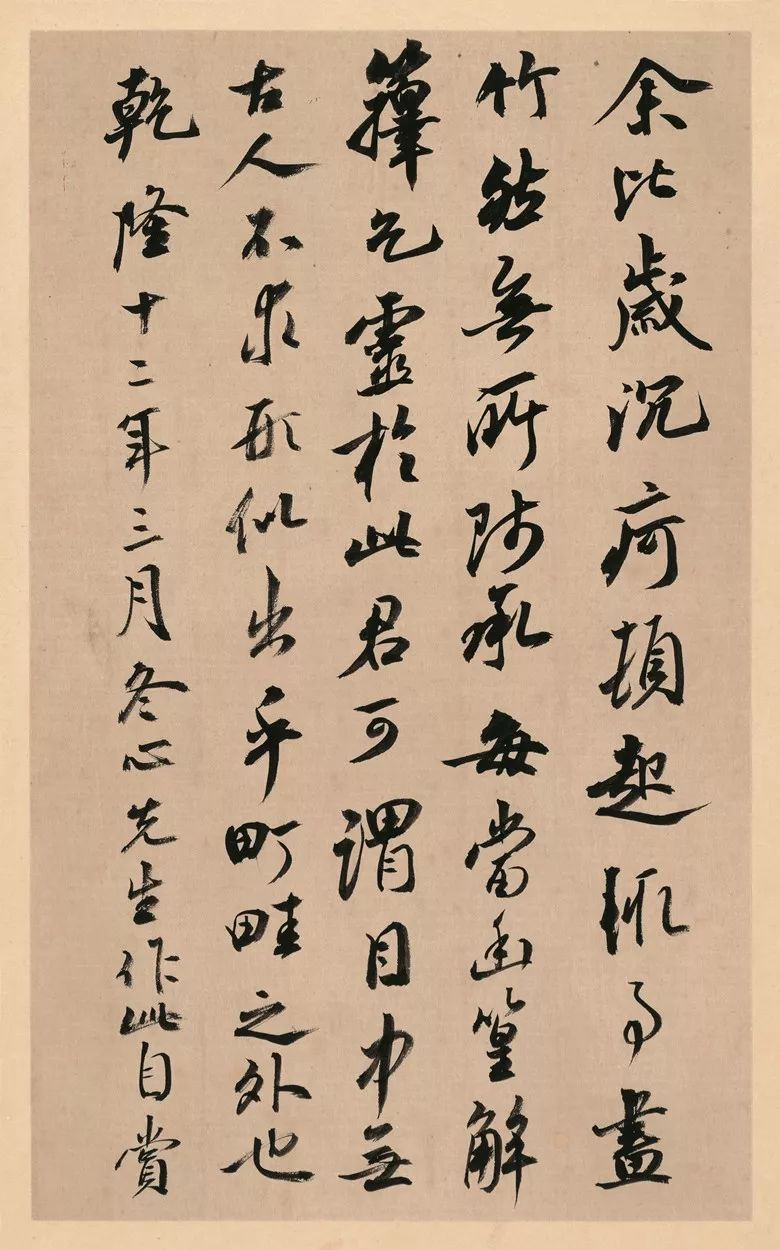 余比歲沉疴頓起輒事畫
竹然無所師承每當幽篁解
籜乞靈於此君可謂目中無
古人不求形似出乎町畦之外也
乾隆十二年三月冬心先生作此自賞